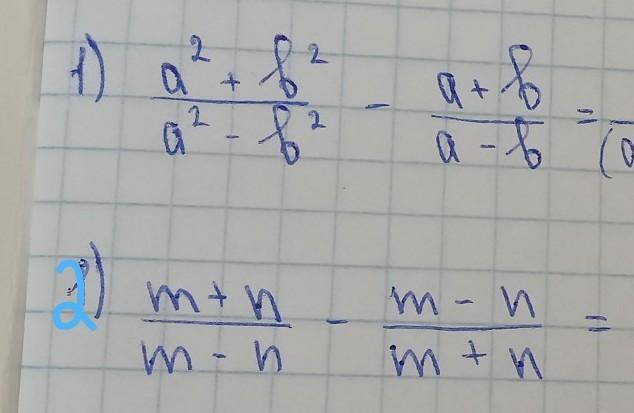 1) a² + b² / a² - b² - a + b / a - b = (a
2) m + n / m - n - m - n / m + n =